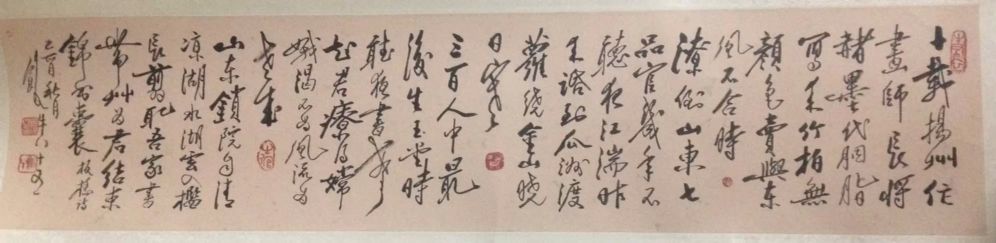 十載揚州作
畫師長將
赭墨代胭脂
寫来竹柏無
顏色賣與東
風不合時
潦倒山東七
品官幾年不
聽夜江湍昨
来話到瓜洲渡
夢繞金山曉
日寒
三百人中最
後生玉堂時
聽夜書聲
知君療得嫦
娥渴不為風流為
老成
山東鎖院自清
涼湖水湖雲入檻
長剪取吾家書
帶艸為君結束
錦囊板橋詩
秋月
年八十又